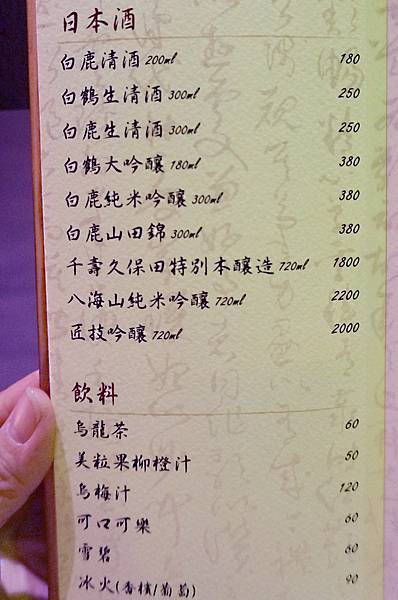 日本酒
白鹿清酒 200ml 180
白鶴生清酒 300ml 250
白鹿生清酒 300ml 250
白鶴大吟釀 180ml 380
白鹿純米吟釀 300ml 380
白鹿山田錦 300ml 380
千壽久保田特別本釀造 720ml 1800
八海山純米吟釀 720ml 2200
匠技吟釀 720ml 2000
飲料
烏龍茶 60
美粒果柳橙汁 50
烏梅汁 120
可口可樂 60
雪碧 60
冰火(香檳/葡萄) 90